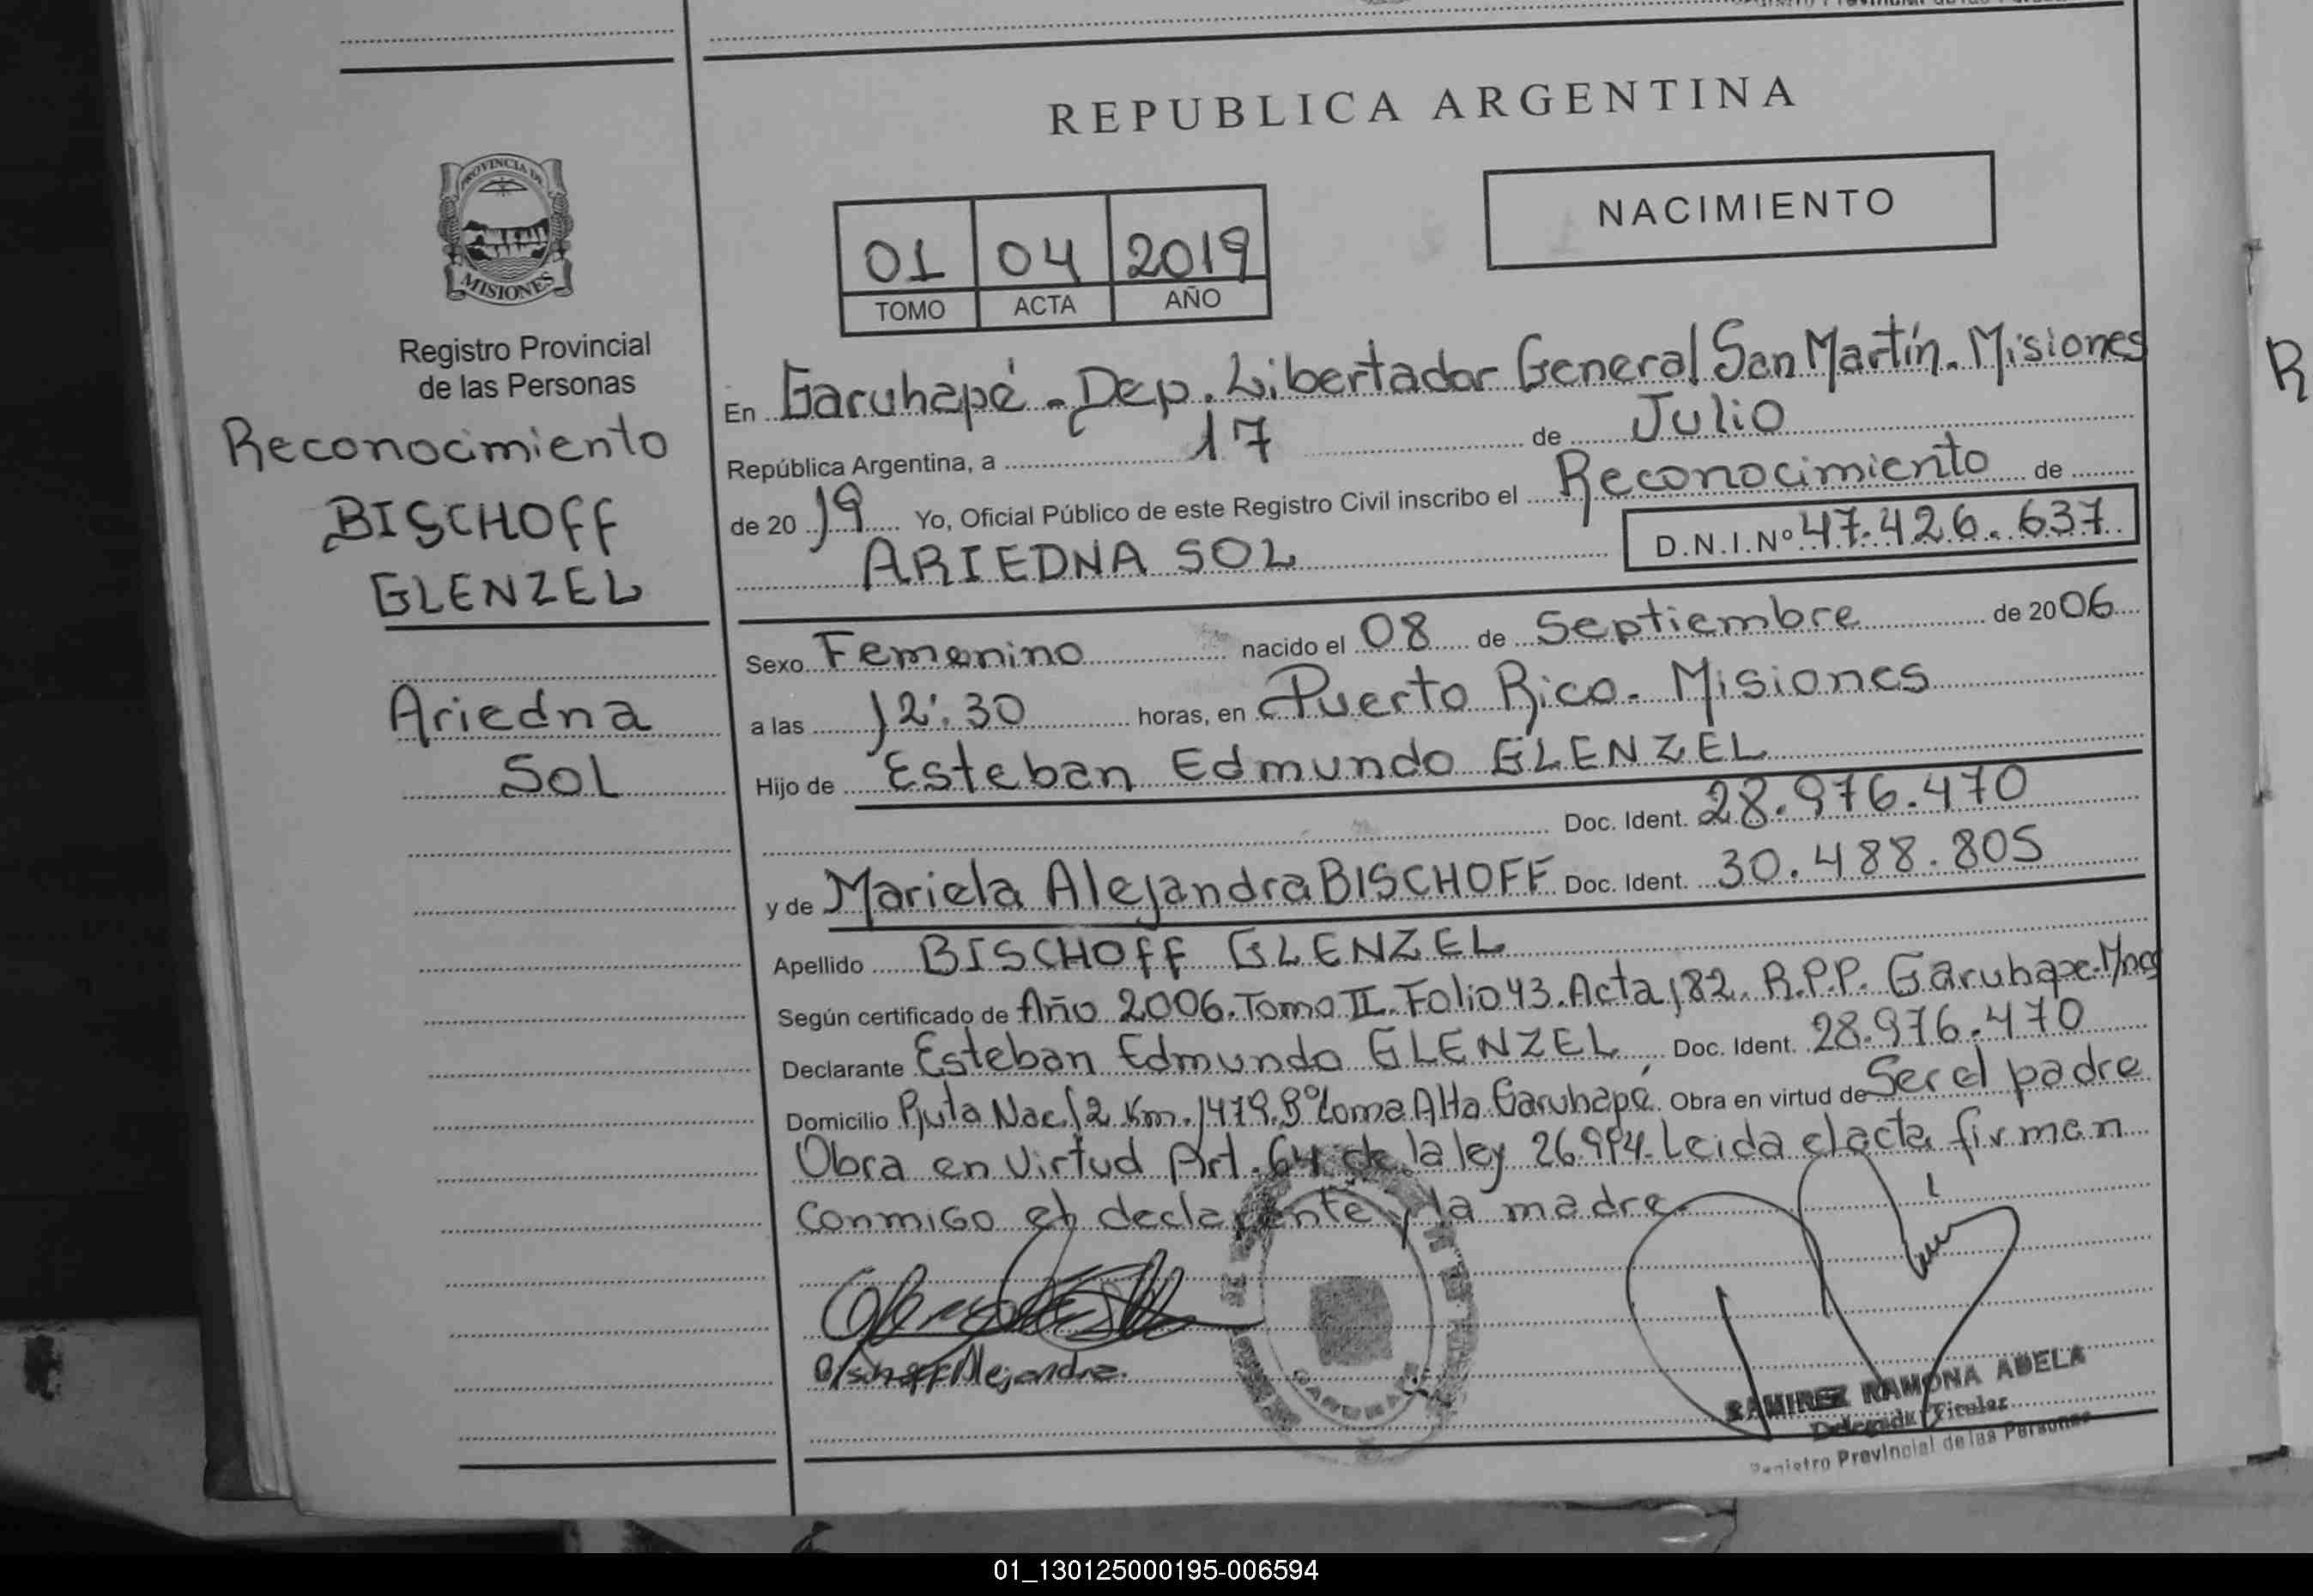 REPUBLICA ARGENTINA
PROVINCIA DE
MISIONES
Registro Provincial
de las Personas
Reconocimiento
BISCHOFF
GLENZEL
Ariedna
Sol
NACIMIENTO
01 04 2019
TOMO ACTA AÑO
En Garuhapé - Dep. Libertador General San Martín. Misiones
República Argentina, a 17 de Julio
de 2019 Yo, Oficial Público de este Registro Civil inscribo el Reconocimiento de
ARIEDNA SOL D.N.I.Nº 47.426.637
Sexo Femenino nacido el 08 de Septiembre de 2006
a las 12:30 horas, en Puerto Rico. Misiones
Hijo de Esteban Edmundo GLENZEL
Doc. Ident. 28.976.470
y de Mariela Alejandra BISCHOFF Doc. Ident. 30.488.805
Apellido BISCHOFF GLENZEL
Según certificado de Año 2006. Tomo II. Folio 43. Acta 182. R.P.P. Garuhape. Mnes
Declarante Esteban Edmundo GLENZEL Doc. Ident. 28.976.470
Domicilio Ruta Nac 12 Km. 1479. Bº Loma Alta Garuhapé. Obra en virtud de Ser el padre
Obra en virtud Art. 64 de la ley 26.994. Leida el acta firman
conmigo el declarante y la madre.
Bischoff Alejandra.
GARUHAPE
RAMIREZ RAMONA ADELA
Delegada Titular
Registro Provincial de las Personas
R
01_130125000195-006594